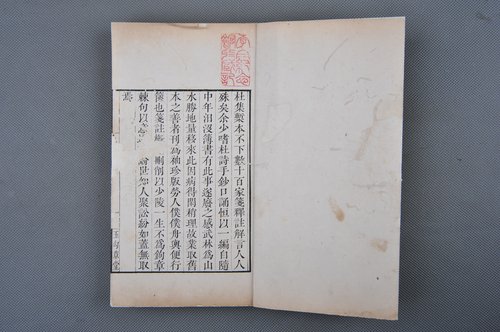 杜集槧本不下數十百家箋釋註解言人人
殊矣余少嗜杜詩手鈔口誦恒以一編自隨
中年汨沒薄書有此事遂廢之感武林為山
水勝地量移來此因病得閒稍理故業取舊
本之善者刊為袖珍版勞人僕僕舟輿便行
篋也箋註 刪削以少陵一生不為鉤章
棘句以 意 論世知人聚訟紛如蓋無取
焉
玉勾草堂